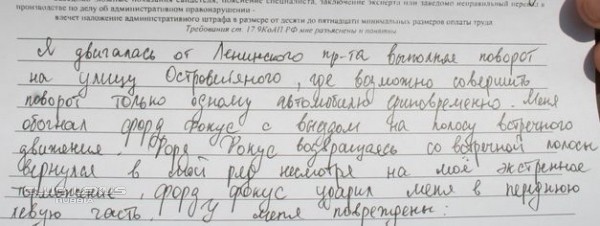 производстве по делу об административном правонарушении -
влечет наложение административного штрафа в размере от десяти до пятнадцати минимальных размеров оплаты труда
Требования ст. 17.9КоАП РФ мне разъяснены и понятны
Я двигалась от Ленинского пр-та выполняя поворот
на улицу Островитяного, где возможно совершить
поворот только одному автомобилю единовременно. Меня
обогнал форд фокус с выездом на полосу встречного
движения. Форд Фокус возвращаясь со встречной полосы
вернулся в мой ряд несмотря на моё экстренное
торможение, форд фокус ударил меня в переднюю
левую часть. У меня повреждены: